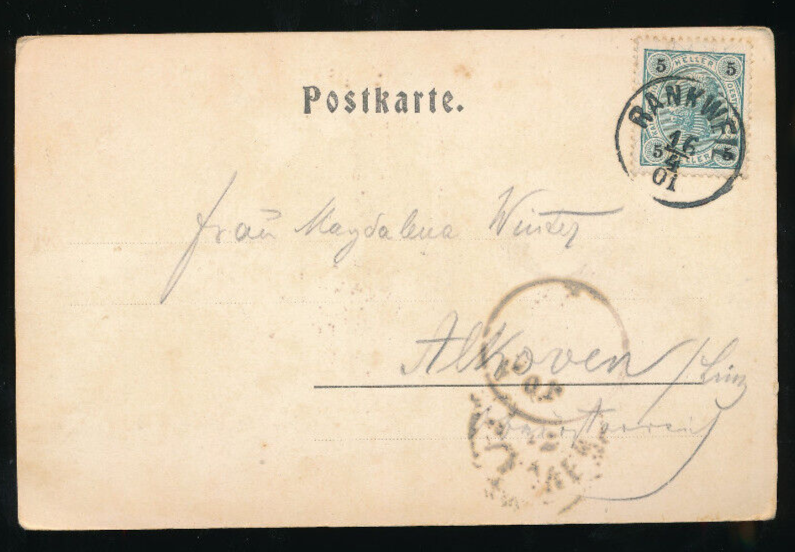 Postkarte.
5 HELLER 5
5 HELLER 5
RANKWEIL
16
4
01
Frau Magdalena Winter
Alkoven / Linz
Oberösterreich